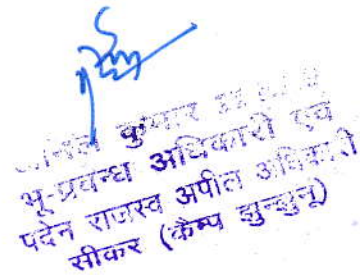 कुमार
भू-प्रबन्ध अधिकारी एवं
पदेन राजस्व अपील अधिकारी
सीकर (कैम्प झुन्झुनू)